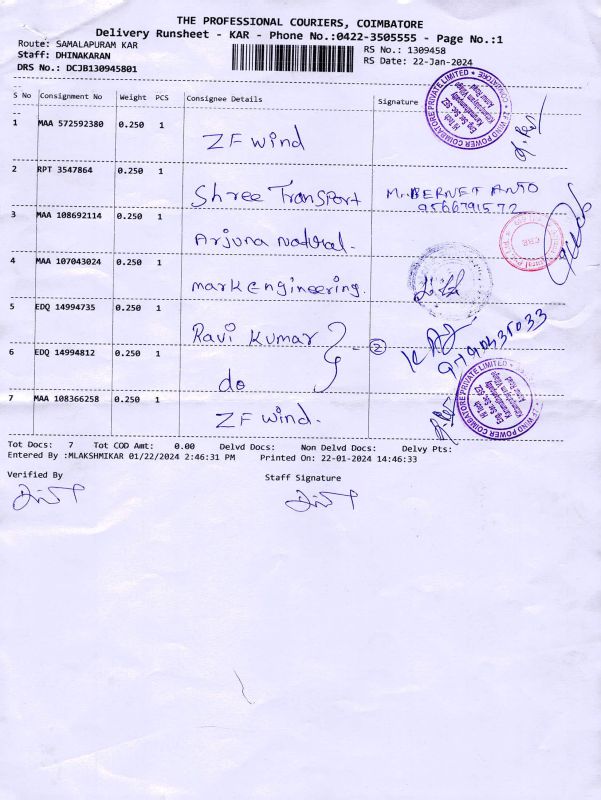 THE PROFESSIONAL COURIERS, COIMBATORE
Delivery Runsheet - KAR - Phone No.:0422-3505555 - Page No.:1
Route: SAMALAPURAM KAR
RS No.: 1309458
Staff: DHINAKARAN
RS Date: 22-Jan-2024
DRS No.: DCJB130945801
S No Consignment No Weight PCS Consignee Details Signature
1 MAA 572592380 0.250 1 ZF wind
2 RPT 3547864 0.250 1 Shree Transport Mr. BERNET ANTO
9566791572
3 MAA 108692114 0.250 1 Arjuna natural.
4 MAA 107043024 0.250 1 mark engineering.
5 EDQ 14994735 0.250 1 Ravi Kumar 2
6 EDQ 14994812 0.250 1 do
7 MAA 108366258 0.250 1 ZF wind.
Tot Docs: 7 Tot COD Amt: 0.00 Delvd Docs: Non Delvd Docs: Delvy Pts:
Entered By :MLAKSHMIKAR 01/22/2024 2:46:31 PM Printed On: 22-01-2024 14:46:33
Verified By Staff Signature
ZF WIND POWER COIMBATORE PRIVATE LIMITED